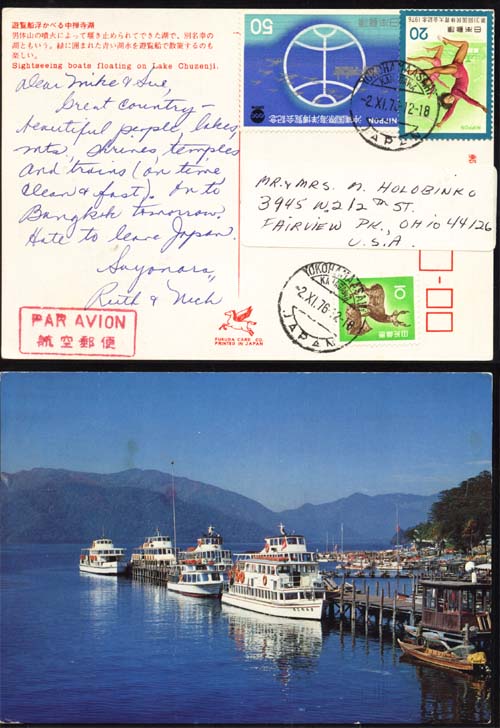 遊覧船浮かべる中禅寺湖
男体山の噴火によって堰き止められてできた湖で、別名幸の
湖ともいう。緑に囲まれた青い湖水を遊覧船で散策するのも
楽しい。
Sightseeing boats floating on Lake Chuzenji.
Dear Mike & Sue,
Great country —
beautiful people, lakes,
mts., shrines, temples
and trains (on time
clean & fast). On to
Bangkok tomorrow.
Hate to leave Japan.
Sayonara,
Ruth & Nich
PAR AVION
航空郵便
FUKUDA CARD CO.
PRINTED IN JAPAN
50
日本郵便
NIPPON
沖縄国際海洋博覧会記念
20
日本郵便
NIPPON
第31回国民体育大会記念 1976
YOKOHAMA
-2.XI.76 12-18
JAPAN
MR. & MRS. M. HOLOBINKO
3945 W. 212TH ST.
FAIRVIEW PK., OHIO 44126
U.S.A.
YOKOHAMA
-2.XI.76 12-18
JAPAN
10
日本郵便
NIPPON